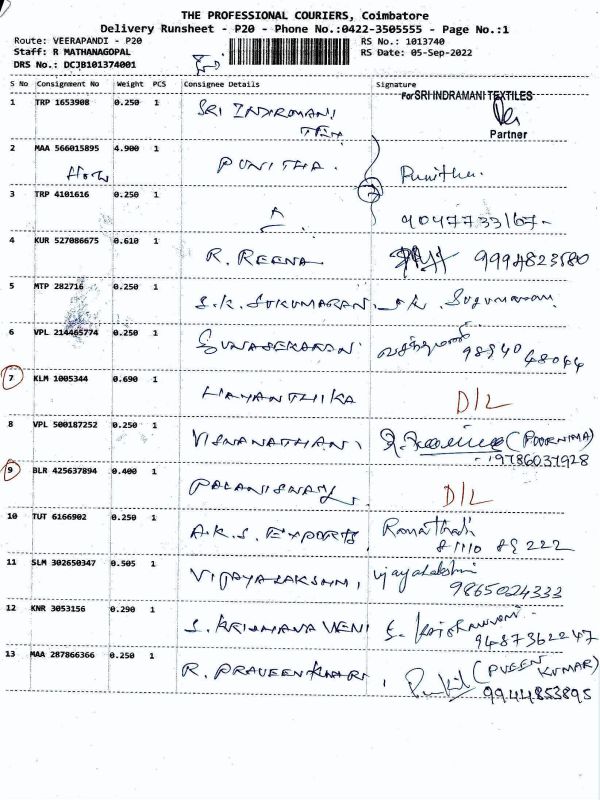 THE PROFESSIONAL COURIERS, Coimbatore
Delivery Runsheet - P20 - Phone No.:0422-3505555 - Page No.:1
Route: VEERAPANDI - P20
RS No.: 1013740
Staff: R MATHANAGOPAL
RS Date: 05-Sep-2022
DRS No.: DCJB101374001
S No Consignment No Weight PCS Consignee Details Signature
1 TRP 1653908 0.250 1 SRI INDROMANI For SRI INDRAMANI TEXTILES
Partner
2 MAA 566015895 4.900 1 PUNITHA. Punitha.
3 TRP 4101616 0.250 1 9047733167-
4 KUR 527086675 0.610 1 R. REENA 9994823580
5 MTP 282716 0.250 1 S.K. SUKUMARAN. S.K. Sugumaran.
6 VPL 214465774 0.250 1 GUNASEKARAN. 98940 48044
7 KLM 1005344 0.690 1 HAYANTHIKA D/L
8 VPL 500187252 0.250 1 VISNANATHAN, (POORNIMA)
9786037928
9 BLR 425637894 0.400 1 PALANISWAMY D/L
10 TUT 6166902 0.250 1 A.K.S. EXPORTS,
81110 89222
11 SLM 302650347 0.505 1 VIJAYALAKSHMI, vijayalakshmi
9865024333
12 KNR 3053156 0.290 1 S. KRISHANAVENI
9487362247
13 MAA 287866366 0.250 1 R. PRAVEENKUMAR, (PVEEN KUMAR)
9944853895